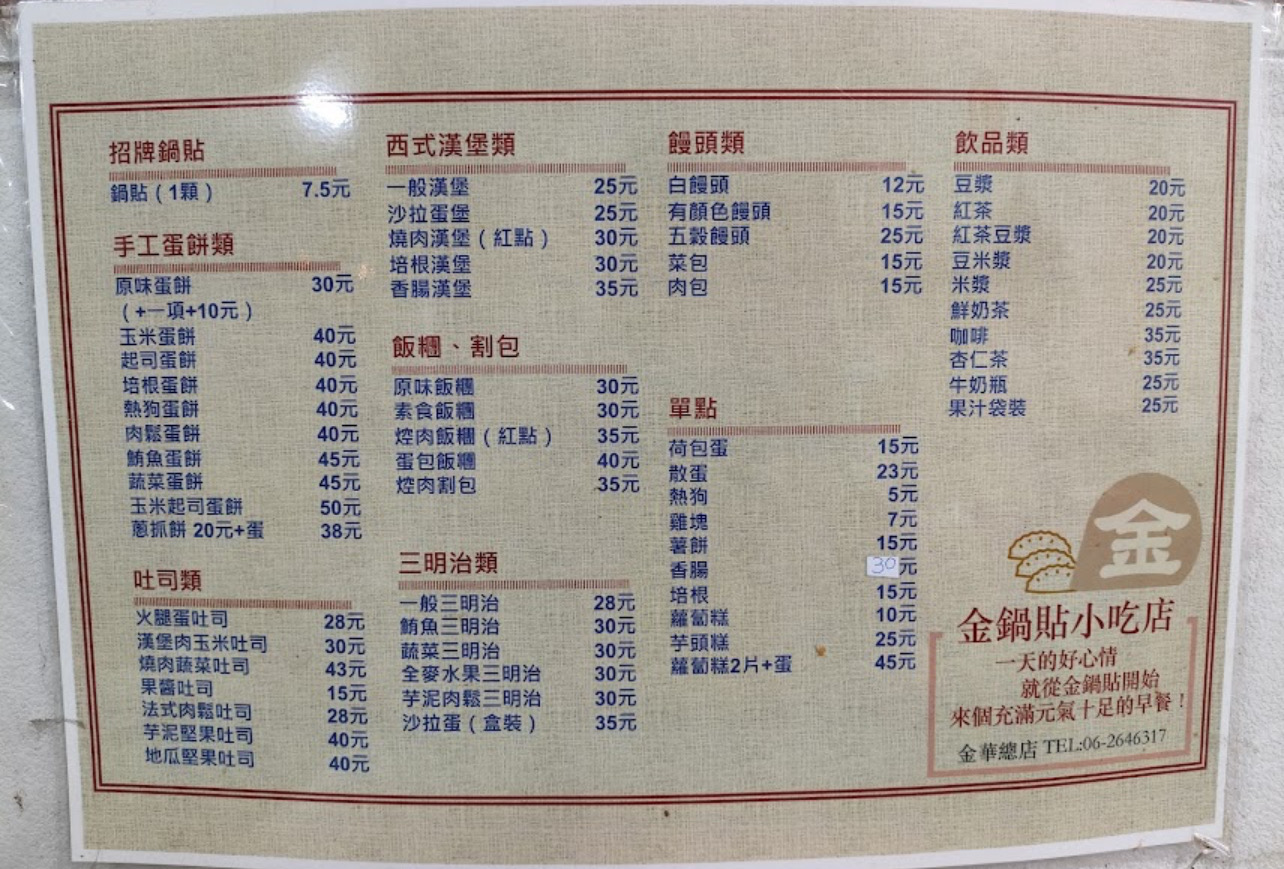 招牌鍋貼
鍋貼(1顆) 7.5元
手工蛋餅類
原味蛋餅 30元
(+一項+10元)
玉米蛋餅 40元
起司蛋餅 40元
培根蛋餅 40元
熱狗蛋餅 40元
肉鬆蛋餅 40元
鮪魚蛋餅 45元
蔬菜蛋餅 45元
玉米起司蛋餅 50元
蔥抓餅 20元+蛋 38元
吐司類
火腿蛋吐司 28元
漢堡肉玉米吐司 30元
燒肉蔬菜吐司 43元
果醬吐司 15元
法式肉鬆吐司 28元
芋泥堅果吐司 40元
地瓜堅果吐司 40元
西式漢堡類
一般漢堡 25元
沙拉蛋堡 25元
燒肉漢堡(紅點) 30元
培根漢堡 30元
香腸漢堡 35元
飯糰、割包
原味飯糰 30元
素食飯糰 30元
焢肉飯糰(紅點) 35元
蛋包飯糰 40元
焢肉割包 35元
三明治類
一般三明治 28元
鮪魚三明治 30元
蔬菜三明治 30元
全麥水果三明治 30元
芋泥肉鬆三明治 30元
沙拉蛋(盒裝) 35元
饅頭類
白饅頭 12元
有顏色饅頭 15元
五穀饅頭 25元
菜包 15元
肉包 15元
單點
荷包蛋 15元
散蛋 23元
熱狗 5元
雞塊 7元
薯餅 15元
香腸 30元
培根 15元
蘿蔔糕 10元
芋頭糕 25元
蘿蔔糕2片+蛋 45元
飲品類
豆漿 20元
紅茶 20元
紅茶豆漿 20元
豆米漿 20元
米漿 25元
鮮奶茶 25元
咖啡 35元
杏仁茶 35元
牛奶瓶 25元
果汁袋裝 25元
金
金鍋貼小吃店
一天的好心情
就從金鍋貼開始
來個充滿元氣十足的早餐!
金華總店 TEL:06-2646317